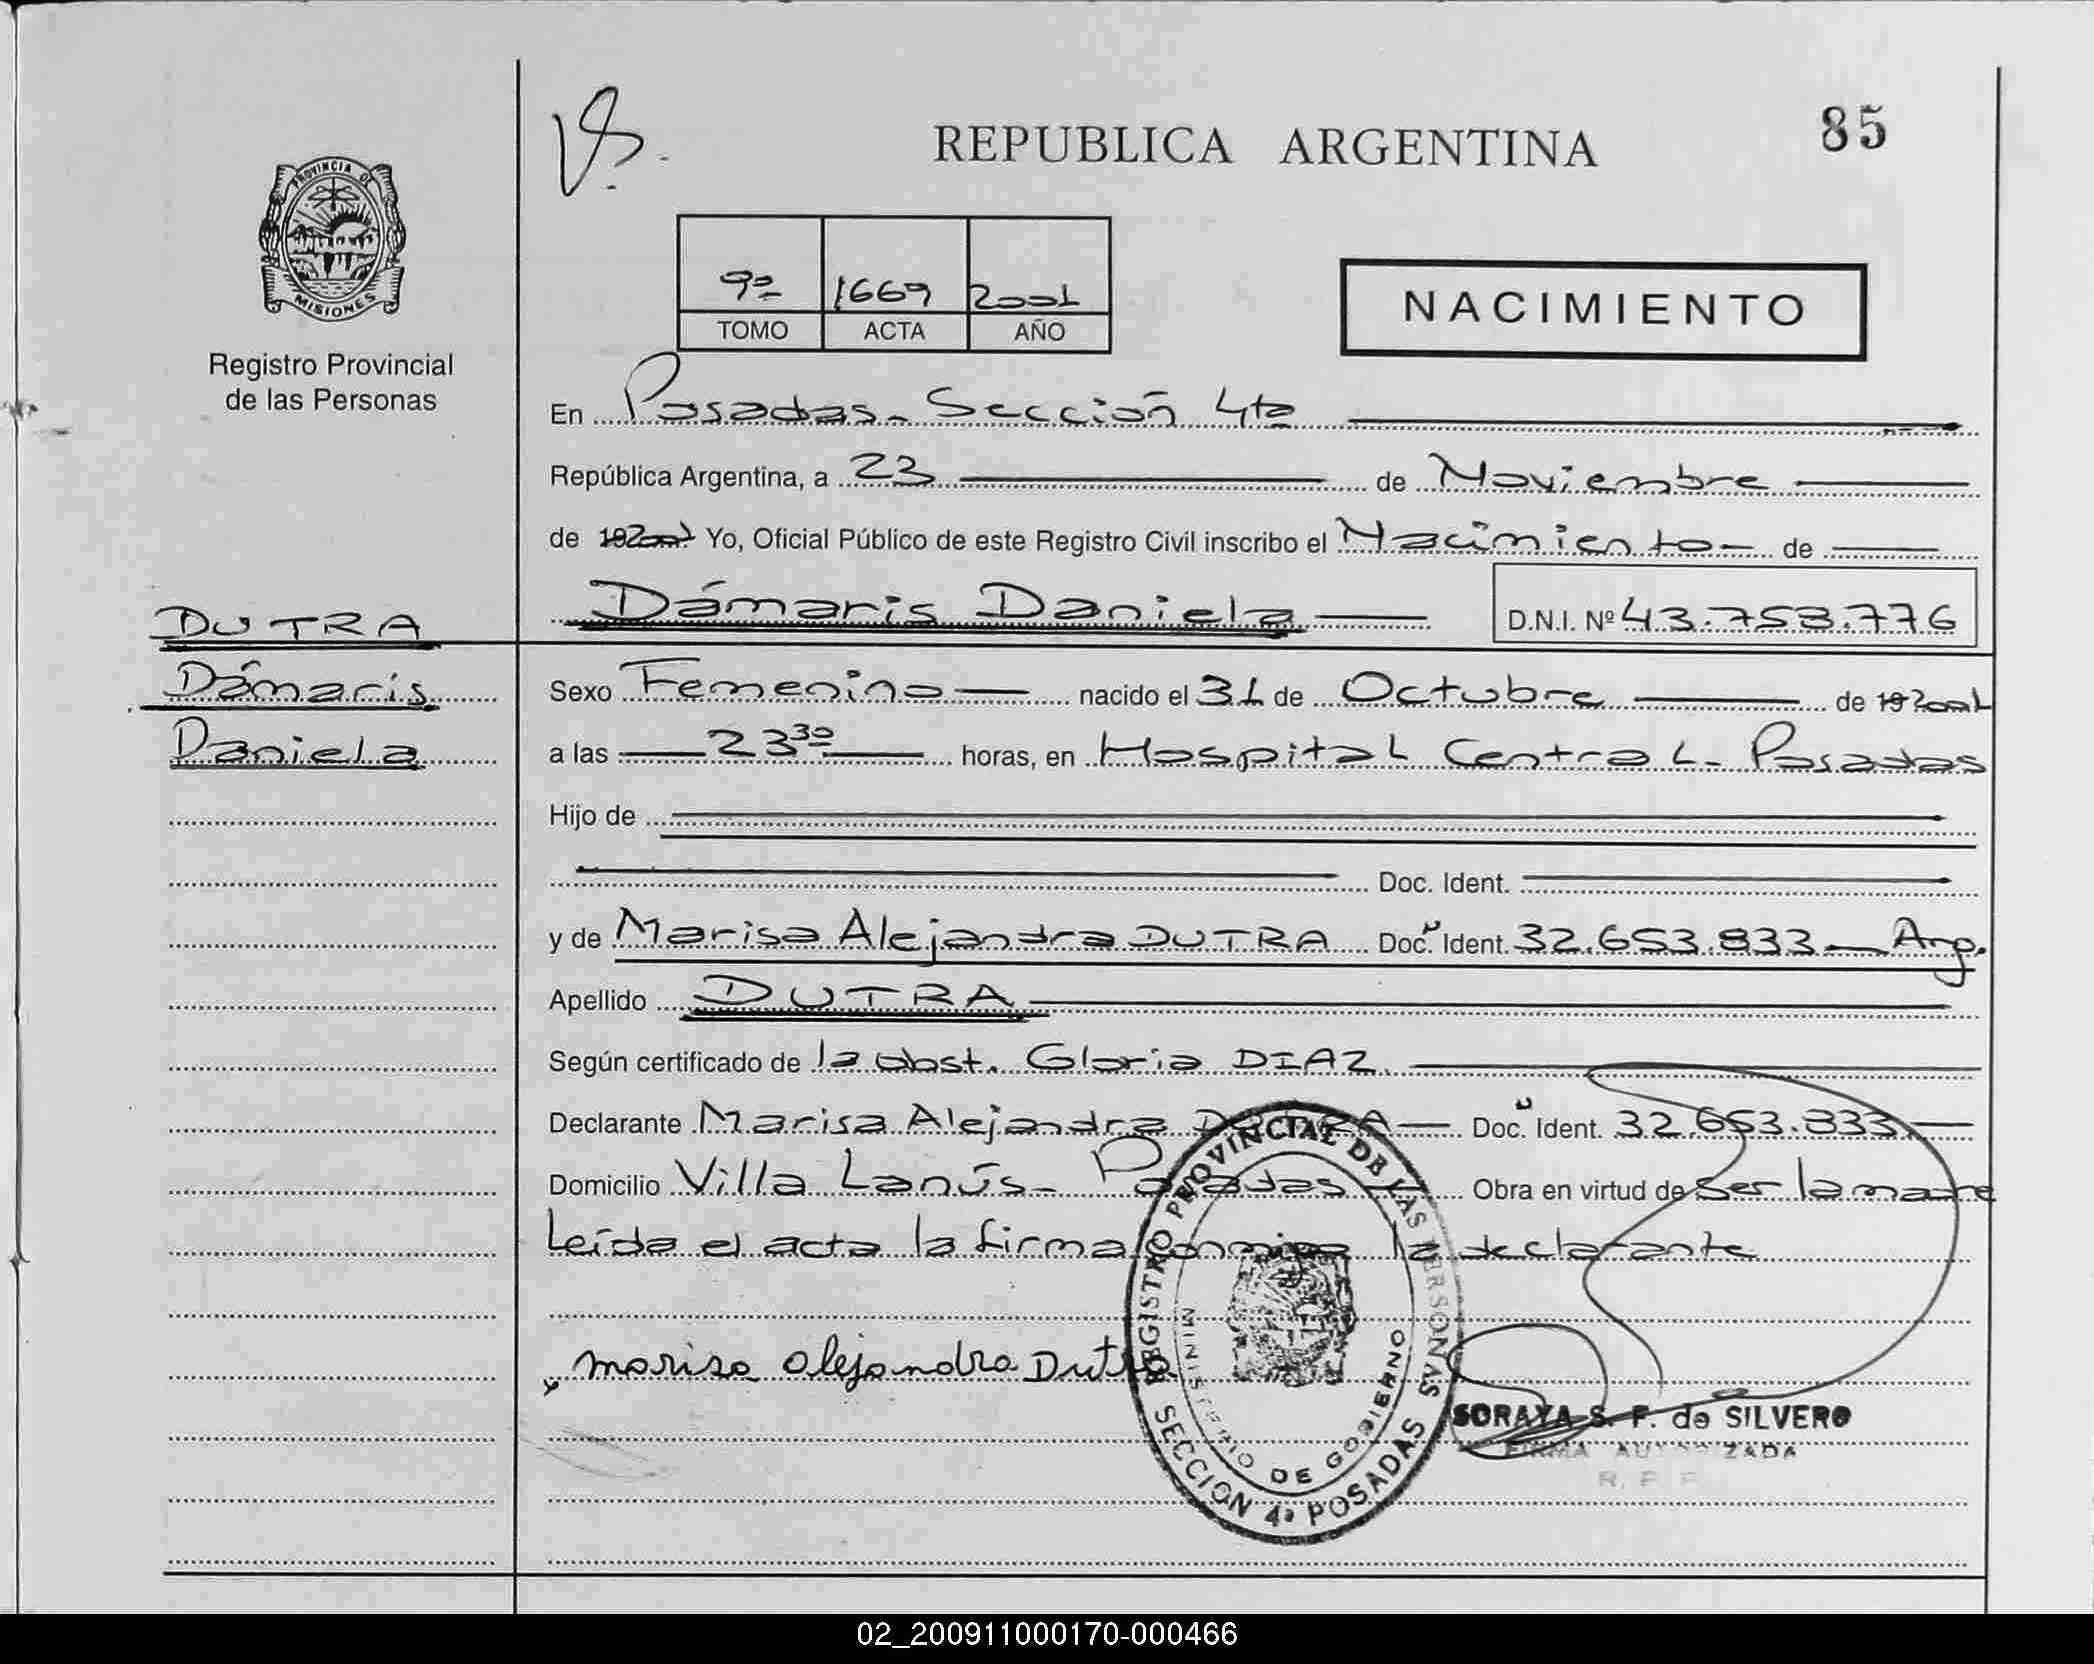 85
REPUBLICA ARGENTINA
PROVINCIA DE
MISIONES
Registro Provincial
de las Personas
9º 1669 2001
TOMO ACTA AÑO
NACIMIENTO
En Posadas - Sección 4ta
República Argentina, a 23 de Noviembre
de 192001 Yo, Oficial Público de este Registro Civil inscribo el Nacimiento de
Dámaris Daniela D.N.I. Nº 43.753.776
DUTRA
Dámaris
Daniela
Sexo Femenino nacido el 31 de Octubre de 192001
a las 23 30 horas, en Hospital Central - Posadas
Hijo de
Doc. Ident.
y de Marisa Alejandra DUTRA Doc. Ident. 32.653.833 - Arg.
Apellido DUTRA
Según certificado de la obst. Gloria DIAZ
Declarante Marisa Alejandra DUTRA Doc. Ident. 32.653.833
Domicilio Villa Lanús - Posadas Obra en virtud de ser la madre
Leída el acta la firma conmigo la declarante
Marisa Alejandra Dutra
REGISTRO PROVINCIAL DE LAS PERSONAS
MINISTERIO DE GOBIERNO
SECCION 4ª POSADAS
SORAYA S. F. de SILVERO
FIRMA AUTORIZADA
02_200911000170-000466